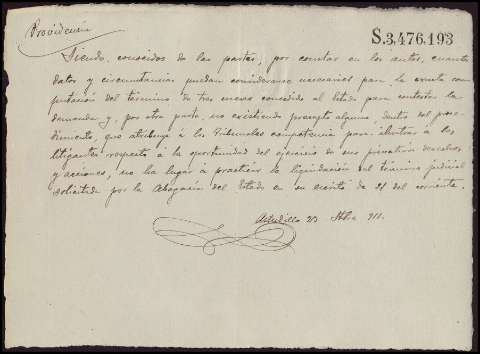 Providencia
S.3,476,193
Siendo conocidos de las partes, por constar en los autos, cuantos
datos y circunstancias puedan considerarse necesarios para la exacta com-
putación del término de tres meses concedido al Estado para contestar la
demanda y, por otra parte, no existiendo precepto alguno, dentro del proce-
dimiento, que atribuya á los Tribunales competencia para ilustrar á los
litigantes respecto á la oportunidad del ejercicio de sus privativos derechos
y acciones, no ha lugar á practicar la liquidación del término judicial
solicitada por la Abogacía del Estado en su escrito de 21 del corriente.
Astudillo 23 911.